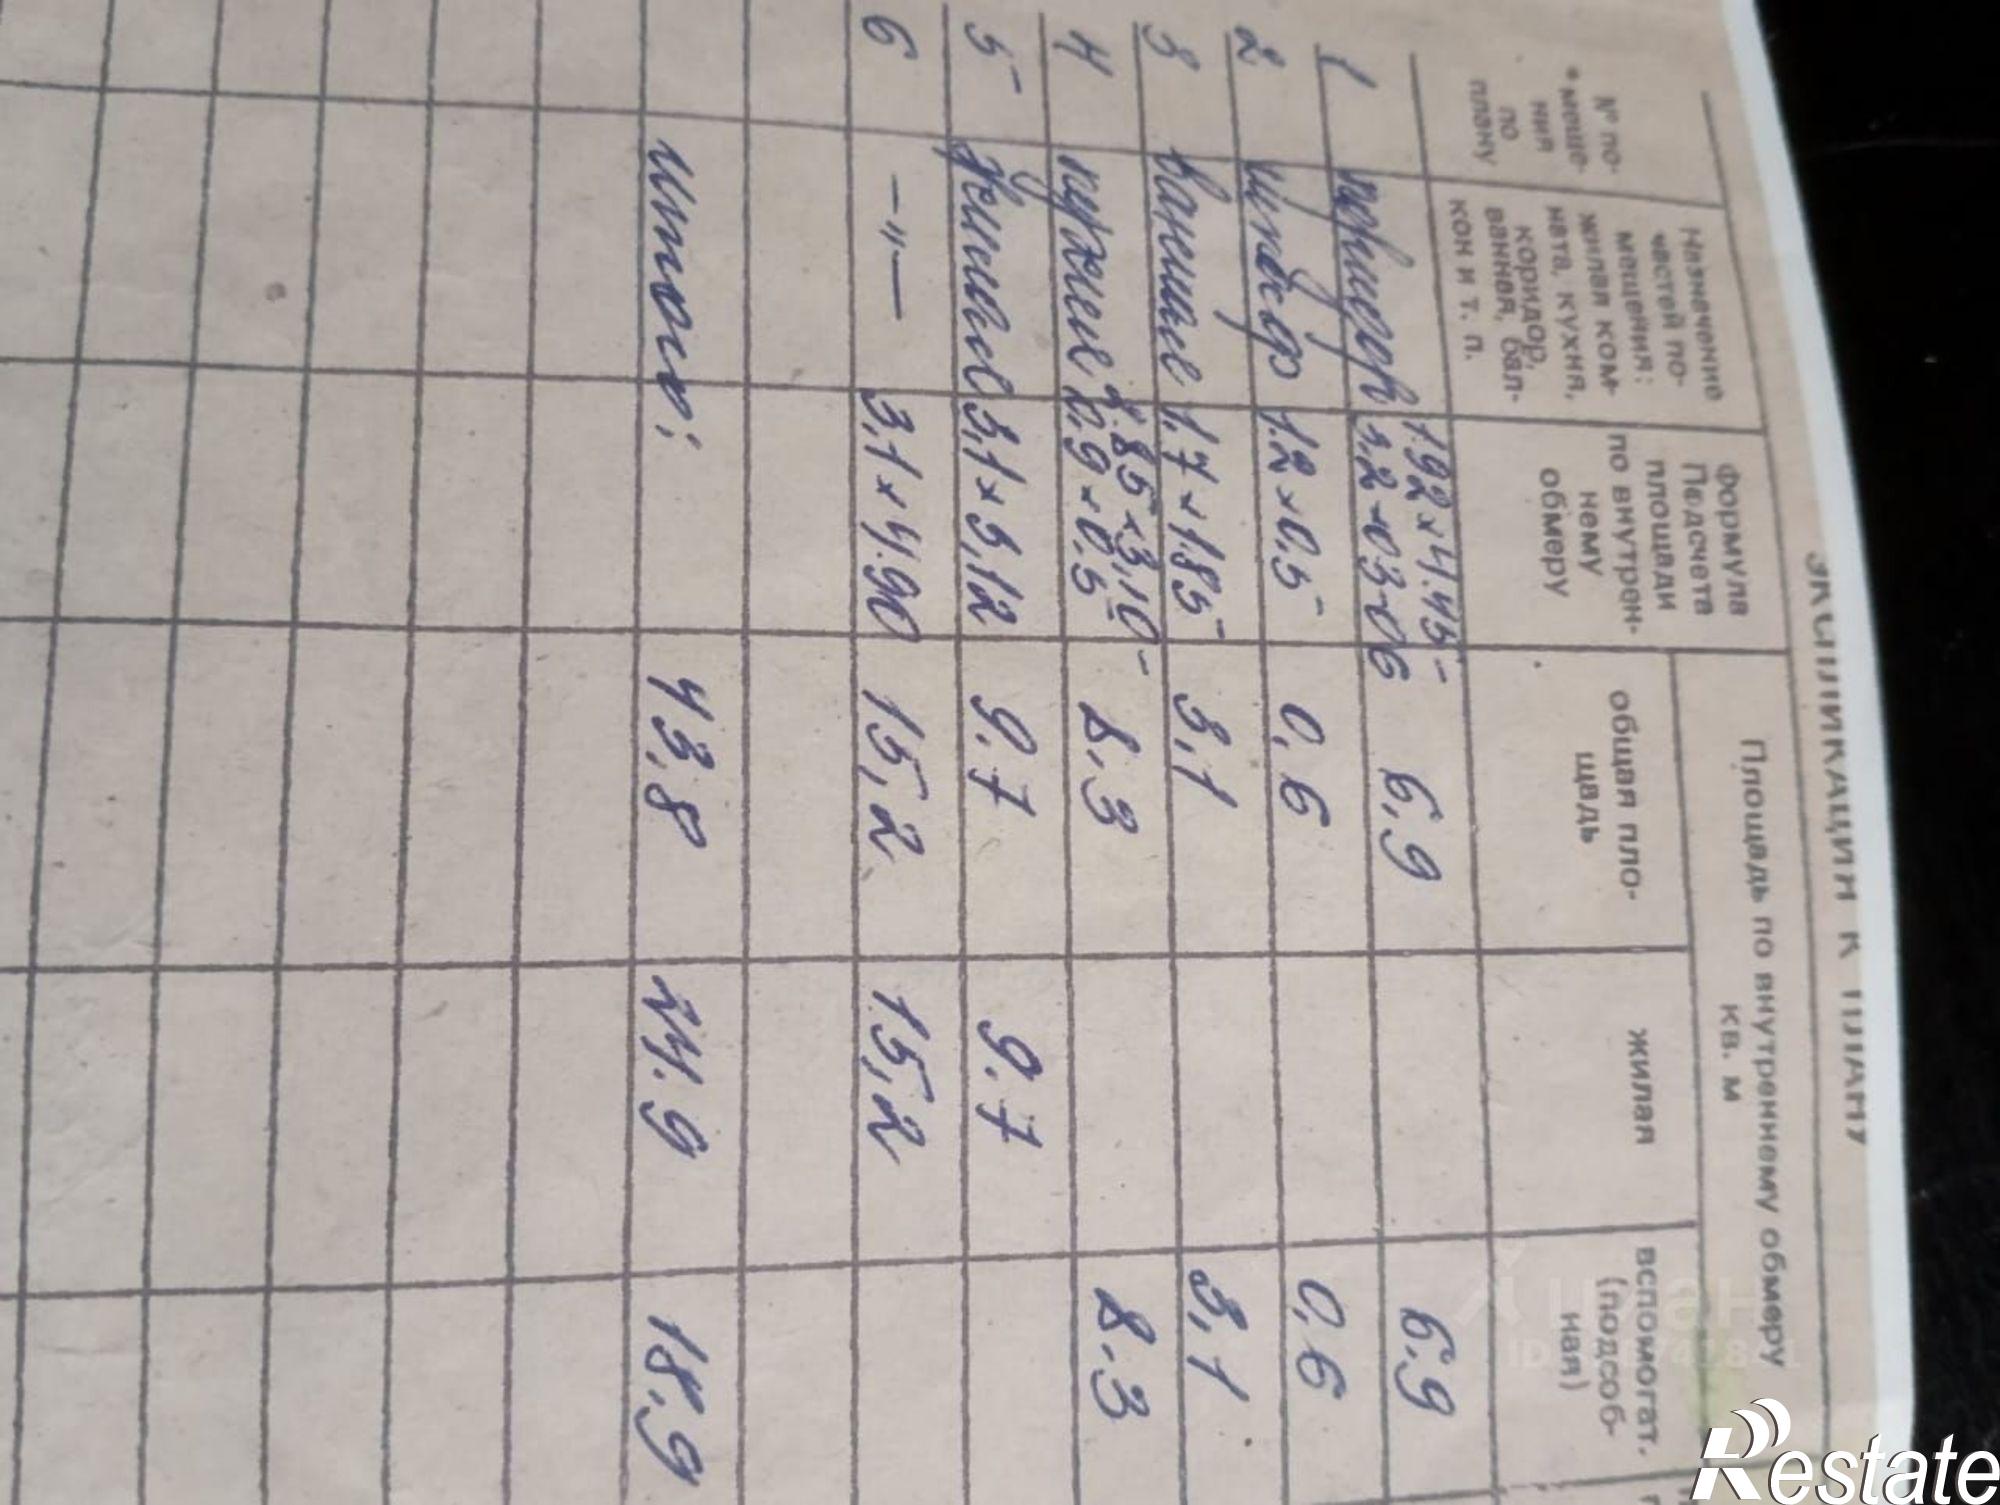 ЭКСПЛИКАЦИЯ К ПЛАНУ
№ по-
меще-
ния
по
плану
Назначение
частей по-
мещения:
жилая ком-
ната, кухня,
коридор,
ванная, бал-
кон и т. п.
Формула
Подсчета
площади
по внутрен-
нему
обмеру
Площадь по внутреннему обмеру
кв. м
общая пло-
щадь
жилая
вспомогат.
(подсоб-
ная)
1 коридор 1.92×4.45 6,9 6.9
2 шкаф 1.2×0,5 0,6 0,6
3 ванные 1.7×1.85 3,1 3,1
4 кухние 2.85×3,10 8.3 8.3
0,9×0.5
5 жилые 3,1×3,12 9.7 9.7
6 -"- 3,1×4.90 15,2 15,2
Итого: 43,8 24.9 18,9
циан
Restate